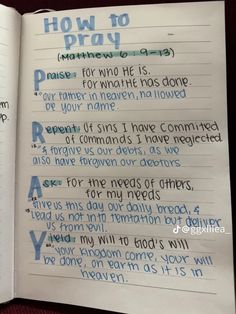 HOW TO
pray
(Matthew 6:9-13)
Praise: For WHO HE IS.
For WHAT HE has done.
"our Father in heaven, hallowed
be your name.
Repent: Of sins I have committed
of commands I have neglected
& forgive us our debts, as we
also have forgiven our debtors
Ask: For the needs of others,
for my needs
Give us this day our daily bread, &
lead us not into temptation but deliver
us from evil.
@ggxiliea_
Yield: my will to God's will
your kingdom come, your will
be done, on earth as it is in
heaven.